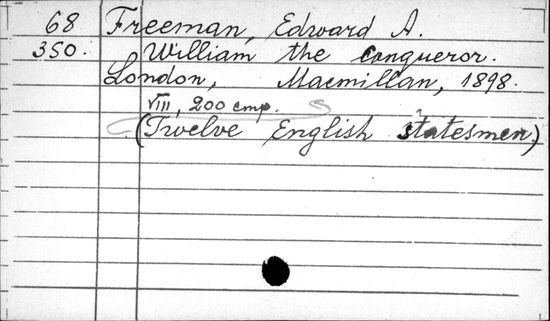 68 Freeman, Edward A.
350. William the Conqueror.
London, Macmillan, 1898.
VIII, 200 стр.
(Twelve English statesmen)